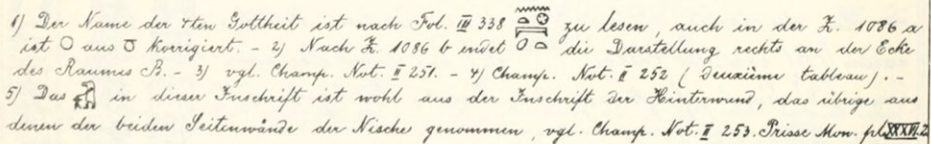 1) Der Name der 4ten Gottheit ist nach Fol. III 338 zu lesen, auch in der Z. 1086 a
ist O aus korrigiert. – 2) Nach Z. 1086 b endet die Darstellung rechts an der Ecke
des Raumes B. – 3) vgl. Champ. Not. II 251. – 4) Champ. Not. II 252 (deuxième tableau). –
5) Das in dieser Inschrift ist wohl aus der Inschrift der Hinterwand, das übrige aus
denen der beiden Seitenwände der Nische genommen, vgl. Champ. Not. II 253. Prisse Mon. pl.